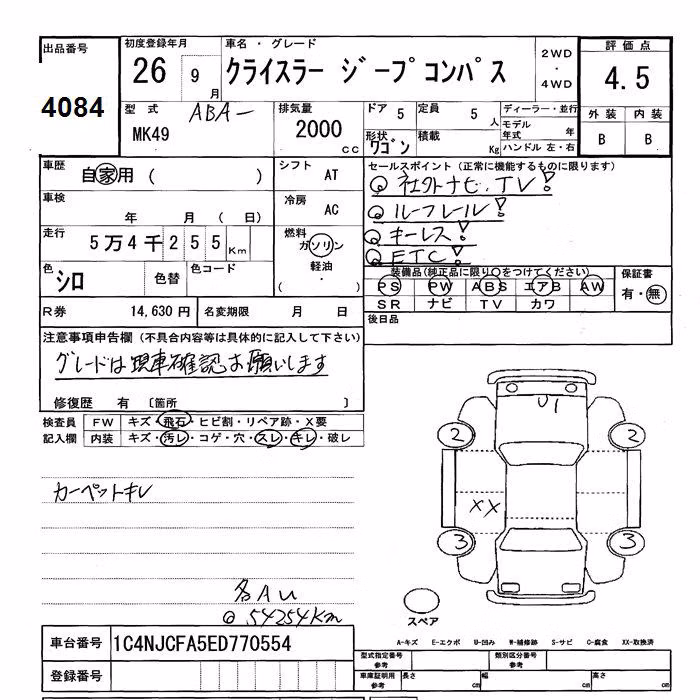 出品番号 初度登録年月 車名・グレード 2WD・4WD 評価点
4084 26 9月 クライスラー ジープコンパス 4.5
型式 ABA- 排気量 ドア 5 定員 5人 ディーラー・並行 外装 内装
MK49 2000cc 形状 ワゴン 積載 Kg モデル年式 年 ハンドル 左・右 B B
車歴 自家用 ( ) シフト AT セールスポイント (正常に機能するものに限ります)
社外ナビ.TV!
車検 年 月 (日) 冷房 AC ルーフレール!
走行 5万4千255Km 燃料 ガソリン キーレス!
軽油・( ) ETC!
色 シロ 色替 色コード 装備品(純正品に限り○をつけてください) 保証書
PS PW ABS エアB AW 有・無
SR ナビ TV カワ
R券 14,630円 名変期限 月 日 後日品
注意事項申告欄 (不具合内容等は具体的に記入して下さい)
グレードは現車確認お願いします
修復歴 有 〔箇所 〕
検査員 FW キズ・飛石・ヒビ割・リペア跡・X要
記入欄 内装 キズ・汚レ・コゲ・穴・スレ・キレ・破レ
U1
2 2
カーペットキレ
XX
3 3
各AU
54254Km
スペア
A-キズ E-エクボ U-凹み W-補修跡 S-サビ C-腐食 XX-取換済
車台番号 1C4NJCFA5ED770554 型式指定番号 参考 類別区分番号 参考
登録番号 車庫証明用 参考 長さ cm 幅 cm 高さ cm